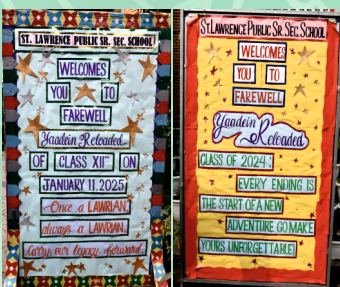 ST. LAWRENCE PUBLIC SR. SEC. SCHOOL
WELCOMES
YOU TO
FAREWELL
Yaadein Reloaded
OF CLASS XIIth ON
JANUARY 11.2025
Once a LAWRIAN
always a LAWRIAN.
Carry our legacy forward.
ST. LAWRENCE PUBLIC SR. SEC. SCHOOL
WELCOMES
YOU TO
FAREWELL
Yaadein Reloaded
CLASS OF 2024:
EVERY ENDING IS
THE START OF A NEW
ADVENTURE GO MAKE
YOURS UNFORGETTABLE!